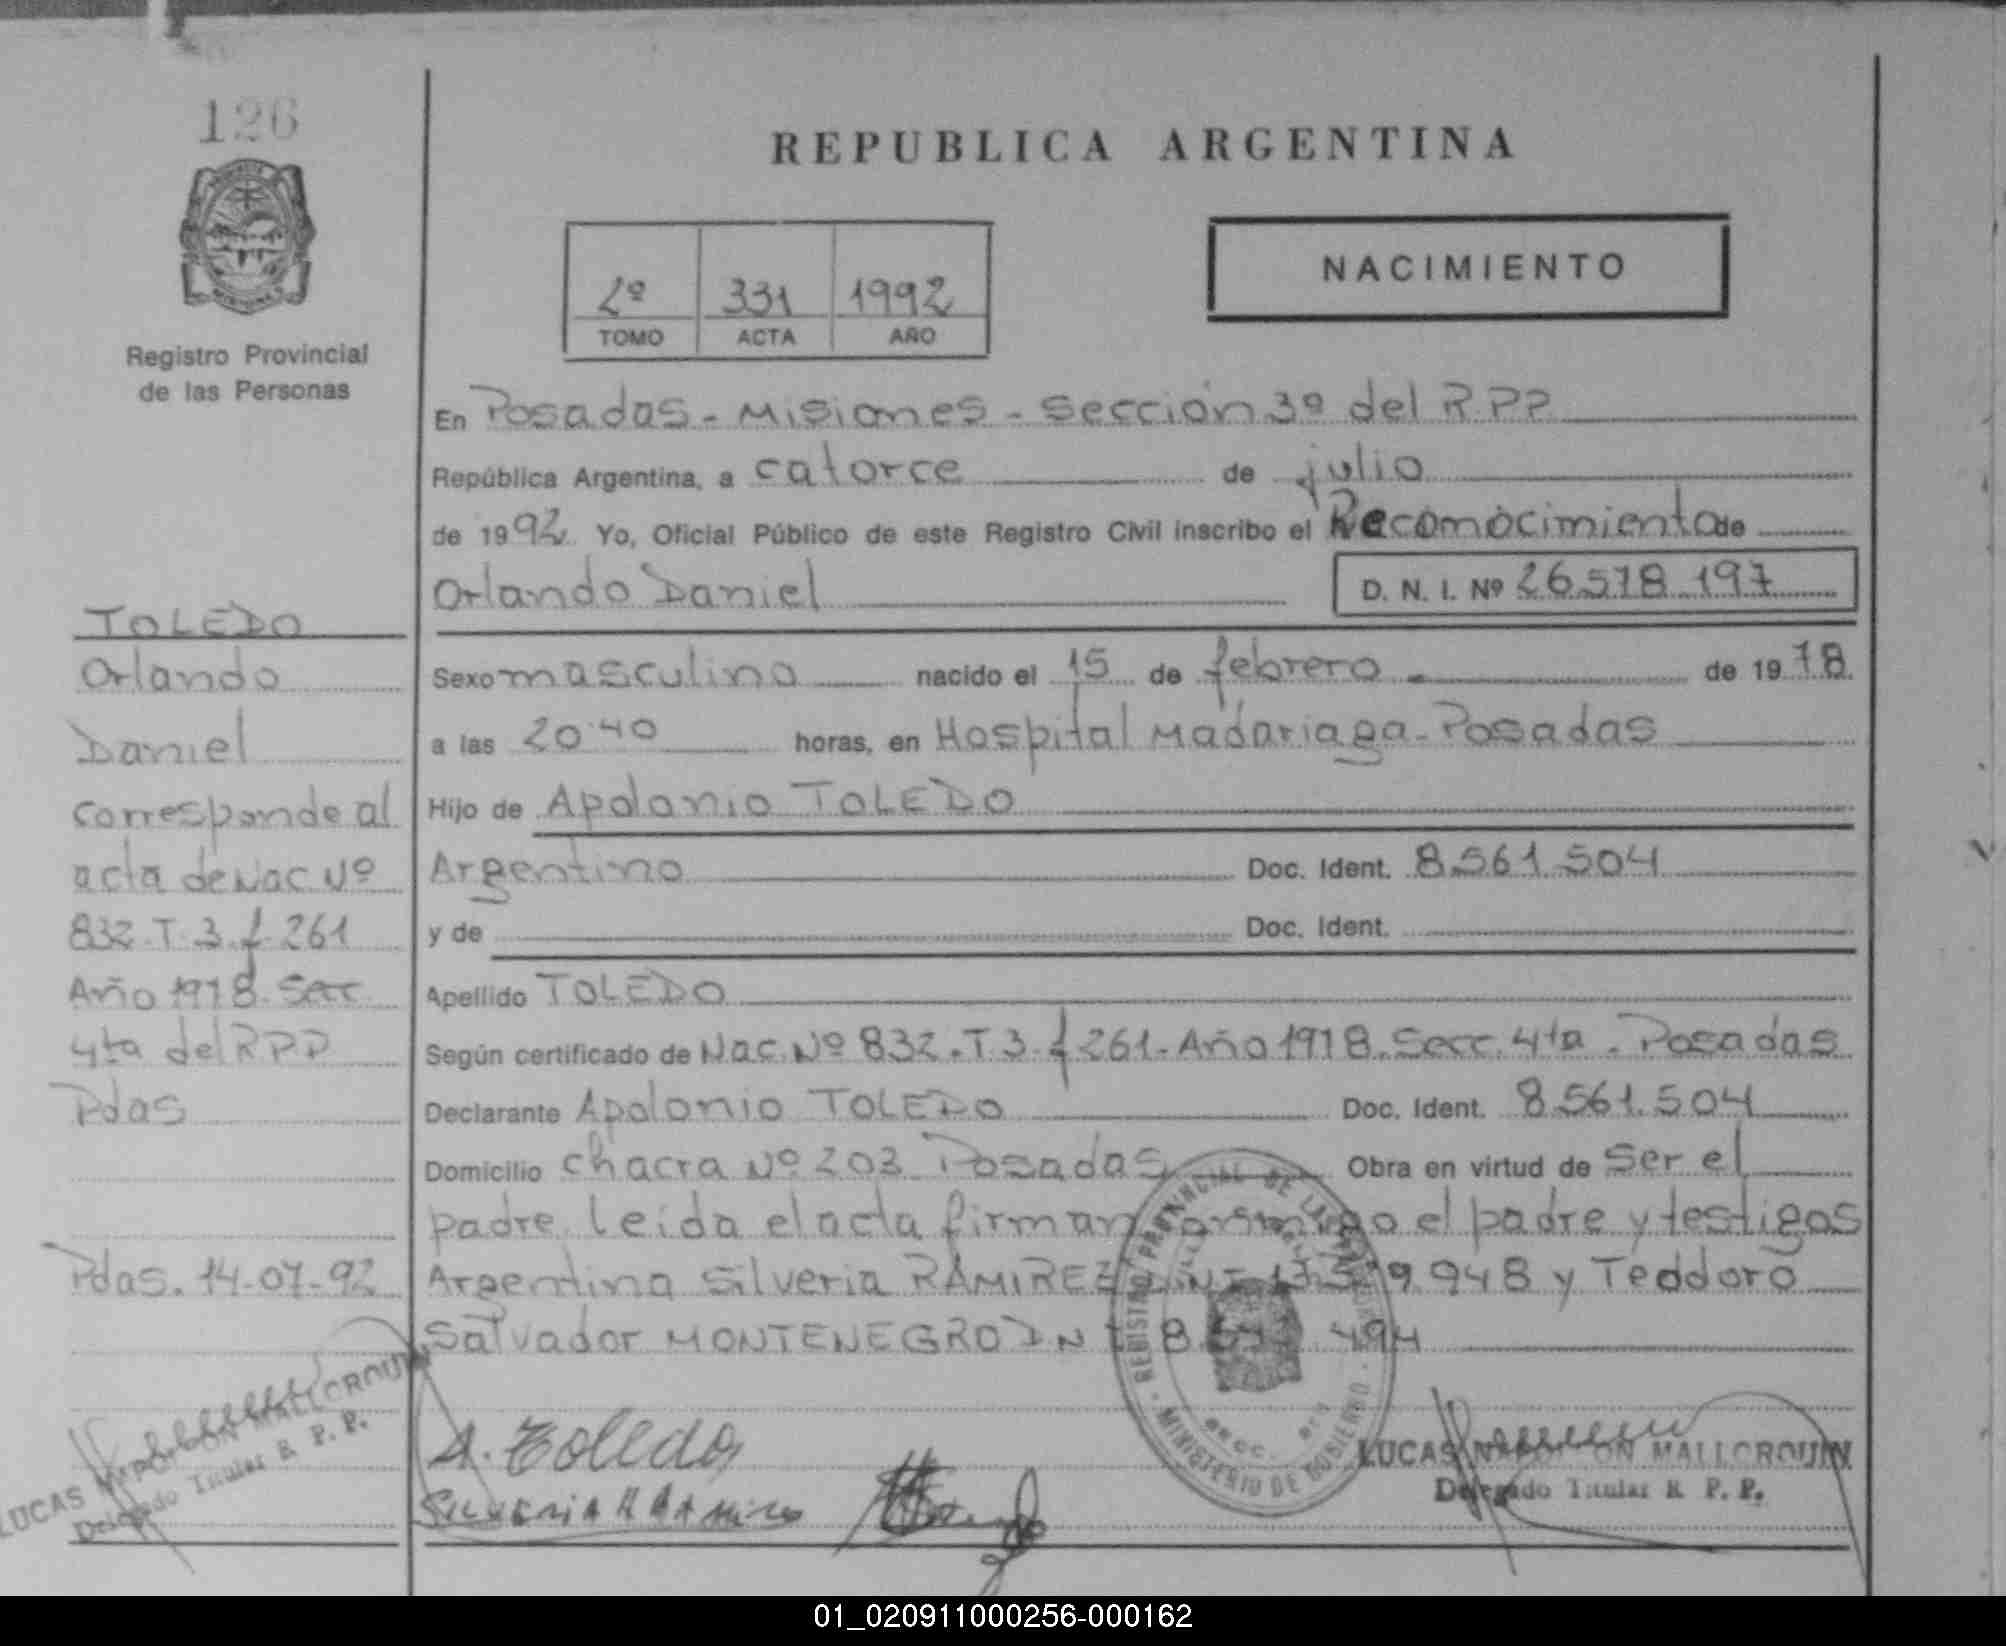 126
REPUBLICA ARGENTINA
2º 331 1992
TOMO ACTA AÑO
NACIMIENTO
Registro Provincial
de las Personas
En Posadas - Misiones - Sección 3º del R.P.P.
República Argentina, a catorce de julio
de 1992 Yo, Oficial Público de este Registro Civil inscribo el Reconocimiento de
Orlando Daniel D. N. I. Nº 26.578.197
Sexo masculino nacido el 15 de febrero de 1978.
a las 20.40 horas, en Hospital Madariaga - Posadas
Hijo de Apolonio TOLEDO
Argentino Doc. Ident. 8.561.504
y de Doc. Ident.
Apellido TOLEDO
Según certificado de Nac. Nº 832. T. 3. f 261. Año 1978. Secc. 4ta. Posadas
Declarante Apolonio TOLEDO Doc. Ident. 8.561.504
Domicilio chacra Nº 203 Posadas Obra en virtud de ser el
padre. leida el acta firman conmigo el padre y testigos
Argentina Silveria RAMIREZ 9.948 y Teodoro
Salvador MONTENEGRO DNI 8. 494
TOLEDO
Orlando
Daniel
corresponde al
acta de Nac. Nº
832. T. 3. f. 261
Año 1978. Secc
4ta del RPP
Pdas
Pdas. 14-07-92
LUCAS NAPOLEON MALLORQUIN
Delegado Titular R. P. P.
A. Toledo
REGISTRO PROVINCIAL DE LAS PERSONAS
MINISTERIO DE GOBIERNO
LUCAS NAPOLEON MALLORQUIN
Delegado Titular R. P. P.
01_020911000256-000162